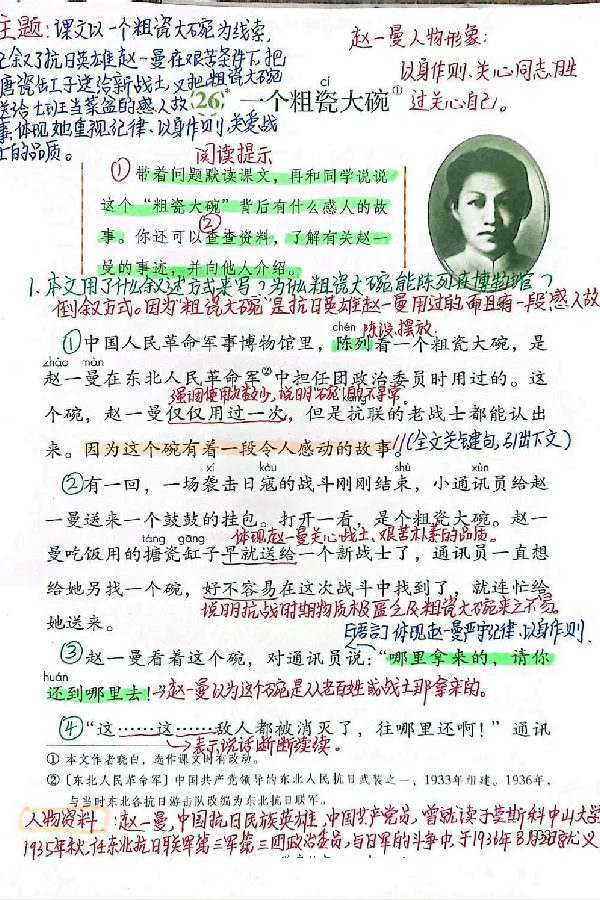 主题:课文以一个粗瓷大碗为线索,
记叙了抗日英雄赵一曼在艰苦条件下,把
唐瓷缸子送给新战士,又把粗瓷大碗
送给七班当菜盆的感人故
事,体现她重视纪律、以身作则、关爱战
士的品质。
赵一曼人物形象:
以身作则、关心同志胜
过关心自己。
26*
cí
一个粗瓷大碗①
阅读提示
①带着问题默读课文,再和同学说说
这个“粗瓷大碗”背后有什么感人的故
②
事。你还可以查查资料,了解有关赵一
曼的事迹,并向他人介绍。
1.本文用了什么叙述方式来写?为什么粗瓷大碗能陈列在博物馆?
倒叙方式。因为“粗瓷大碗”是抗日英雄赵一曼用过的,而且有一段感人故
chén
陈设,摆放.
①中国人民革命军事博物馆里,陈列着一个粗瓷大碗,是
zhào màn
赵一曼在东北人民革命军②中担任团政治委员时用过的。这
强调使用次数少,说明不
kàng
个碗,赵一曼仅仅用过一次,但是抗联的老战士都能认出
来。因为这个碗有着一段令人感动的故事。
(全文关键句,引出下文)
xí kòu shù xùn
②有一回,一场袭击日寇的战斗刚刚结束,小通讯员给赵
一曼送来一个鼓鼓的挂包。打开一看,是个粗瓷大碗。赵一
táng gāng
体现赵一曼关心战士、艰苦朴素的品质。
曼吃饭用的搪瓷缸子早就送给一个新战士了,通讯员一直想
给她另找一个碗,好不容易在这次战斗中找到了,就连忙给
说明抗战时期物质极匮乏及粗瓷大碗来之不易。
她送来。
【语言】体现赵一曼严守纪律、以身作则.
③赵一曼看着这个碗,对通讯员说:“哪里拿来的,请你
huán
还到哪里去!”
→赵一曼以为这个碗是从老百姓或战士那拿来的。
④“这……这……敌人都被消灭了,往哪里还啊!”通讯
→表示说话断断续续。
① 本文作者晓白,选作课文时有改动。
②〔东北人民革命军〕中国共产党领导的东北人民抗日武装之一,1933年组建。1936年,
与当时东北各抗日游击队改编为东北抗日联军。
人物资料:赵一曼,中国抗日民族英雄,中国共产党员,曾就读于莫斯科中山大学
1935年秋,任东北抗日联军第三军第二团政治委员,与日军的斗争中,于1936年8月